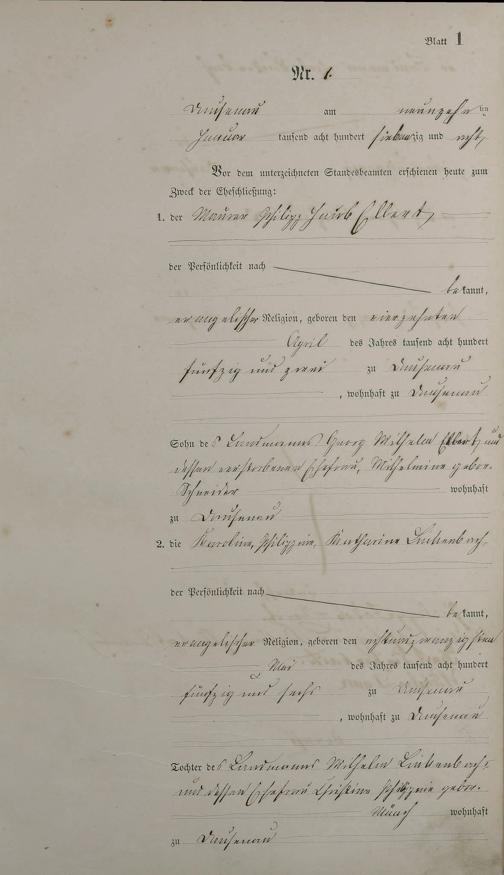 Blatt 1
Nr. 1.
Dausenau am neunzehn ten
Januar tausend acht hundert siebenzig und acht,
Vor dem unterzeichneten Standesbeamten erschienen heute zum
Zweck der Eheschließung:
1. der Maurer Philipp Jacob Elbert,
der Persönlichkeit nach
bekannt,
evangelischer Religion, geboren den vierzehnten
April des Jahres tausend acht hundert
fünfzig und zwei zu Dausenau
, wohnhaft zu Dausenau
Sohn des Landmanns Georg Wilhelm Elbert, und
dessen verstorbenen Ehefrau, Wilhelmine gebor.
Schneider wohnhaft
zu Dausenau
2. die Karoline, Philippine, Katharine Linkenbach,
der Persönlichkeit nach
bekannt,
evangelischer Religion, geboren den achtundzwanzigsten
Mai des Jahres tausend acht hundert
fünfzig und sechs zu Dausenau
, wohnhaft zu Dausenau
Tochter des Landmanns Wilhelm Linkenbach,
und dessen Ehefrau Christine Philippine gebor.
Münch wohnhaft
zu Dausenau